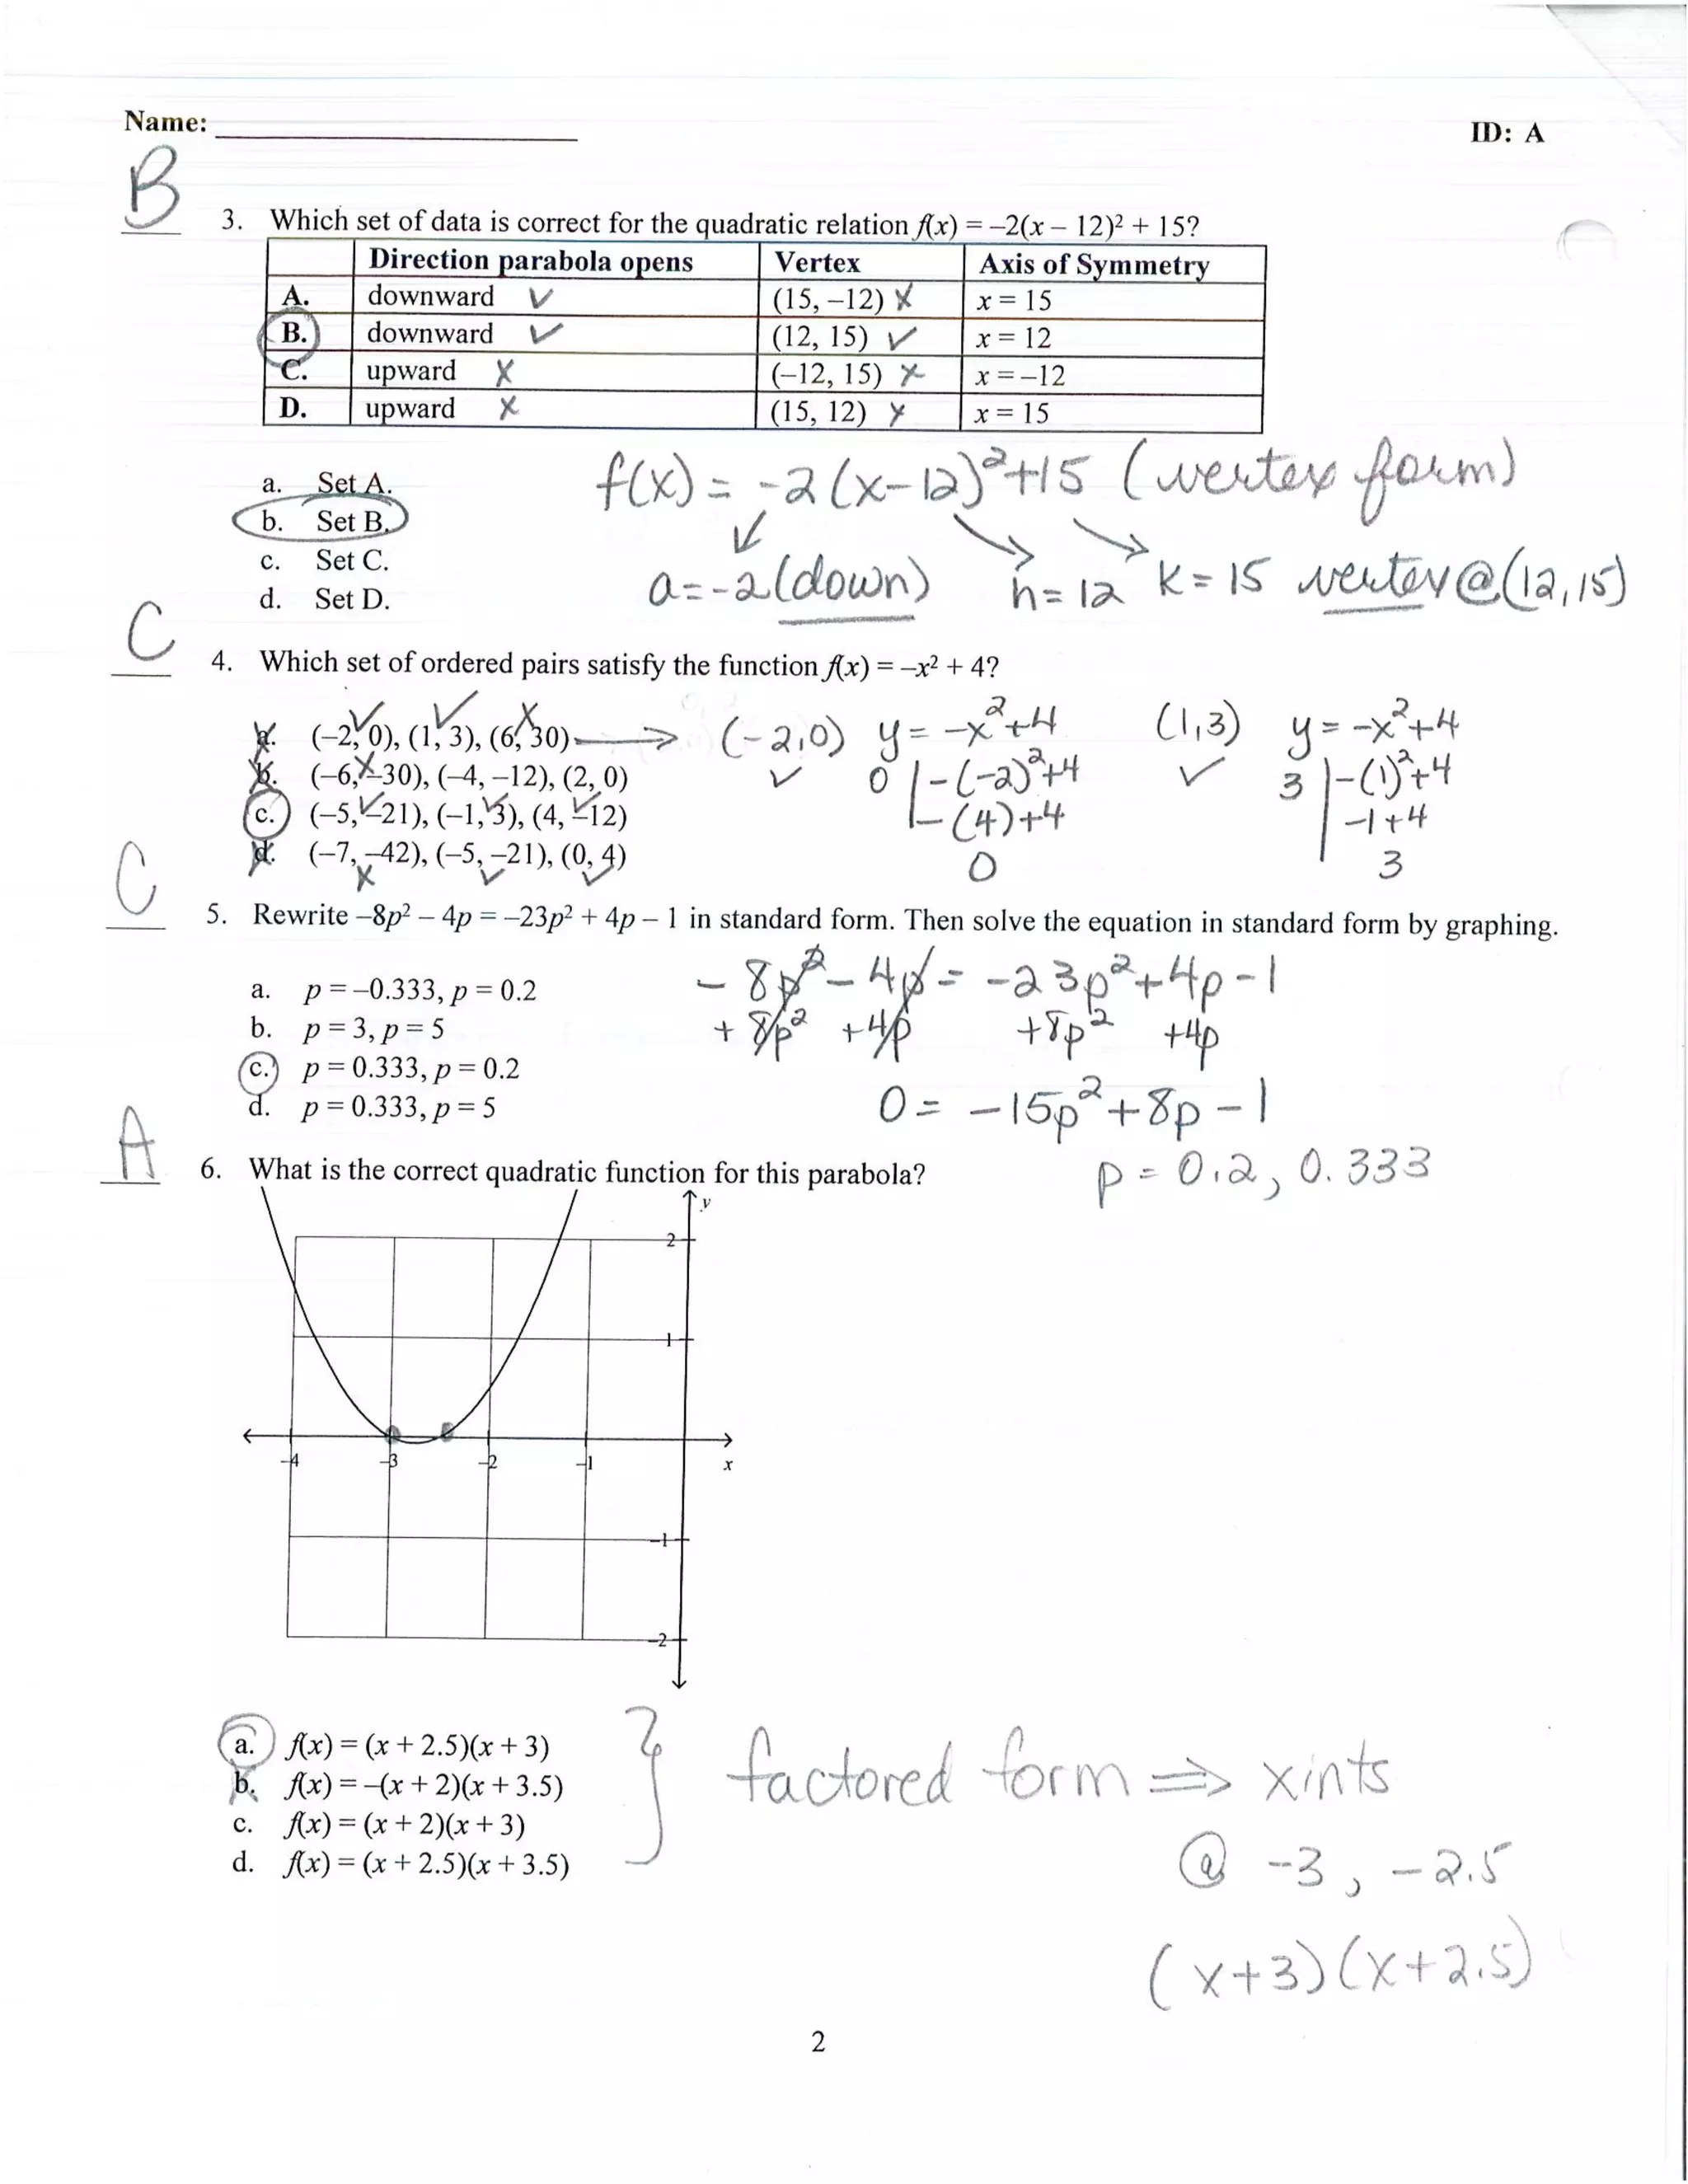 Name:
ID: A
B
3. Which set of data is correct for the quadratic relation f(x) = –2(x – 12)² + 15?
Direction parabola opens Vertex Axis of Symmetry
A. downward ✓ (15, –12) ✗ x = 15
B. downward ✓ (12, 15) ✓ x = 12
C. upward ✗ (–12, 15) ✗ x = –12
D. upward ✗ (15, 12) ✗ x = 15
a. Set A.
b. Set B.
c. Set C.
d. Set D.
f(x) = -2(x-12)²+15 (vertex form)
a=-2(down) h=12 k=15 vertex@(12,15)
C
4. Which set of ordered pairs satisfy the function f(x) = –x² + 4?
a. (–2, 0), (1, 3), (6, 30)
b. (–6, –30), (–4, –12), (2, 0)
c. (–5, –21), (–1, 3), (4, –12)
d. (–7, –42), (–5, –21), (0, 4)
(-2,0) y = -x²+4
✓ 0 | -(-2)²+4
-(4)+4
0
(1,3) y = -x²+4
✓ 3 | -(1)²+4
-1+4
3
C
5. Rewrite –8p² – 4p = –23p² + 4p – 1 in standard form. Then solve the equation in standard form by graphing.
a. p = –0.333, p = 0.2
b. p = 3, p = 5
c. p = 0.333, p = 0.2
d. p = 0.333, p = 5
-8p² - 4p = -23p²+4p-1
+8p² +4p +8p² +4p
0 = -15p²+8p-1
p = 0.2, 0.333
A
6. What is the correct quadratic function for this parabola?
y
2
1
-4 -3 -2 -1 x
-1
-2
a. f(x) = (x + 2.5)(x + 3)
b. f(x) = –(x + 2)(x + 3.5)
c. f(x) = (x + 2)(x + 3)
d. f(x) = (x + 2.5)(x + 3.5)
factored form ⇒ xints
@ -3, -2.5
(x+3)(x+2.5)
2